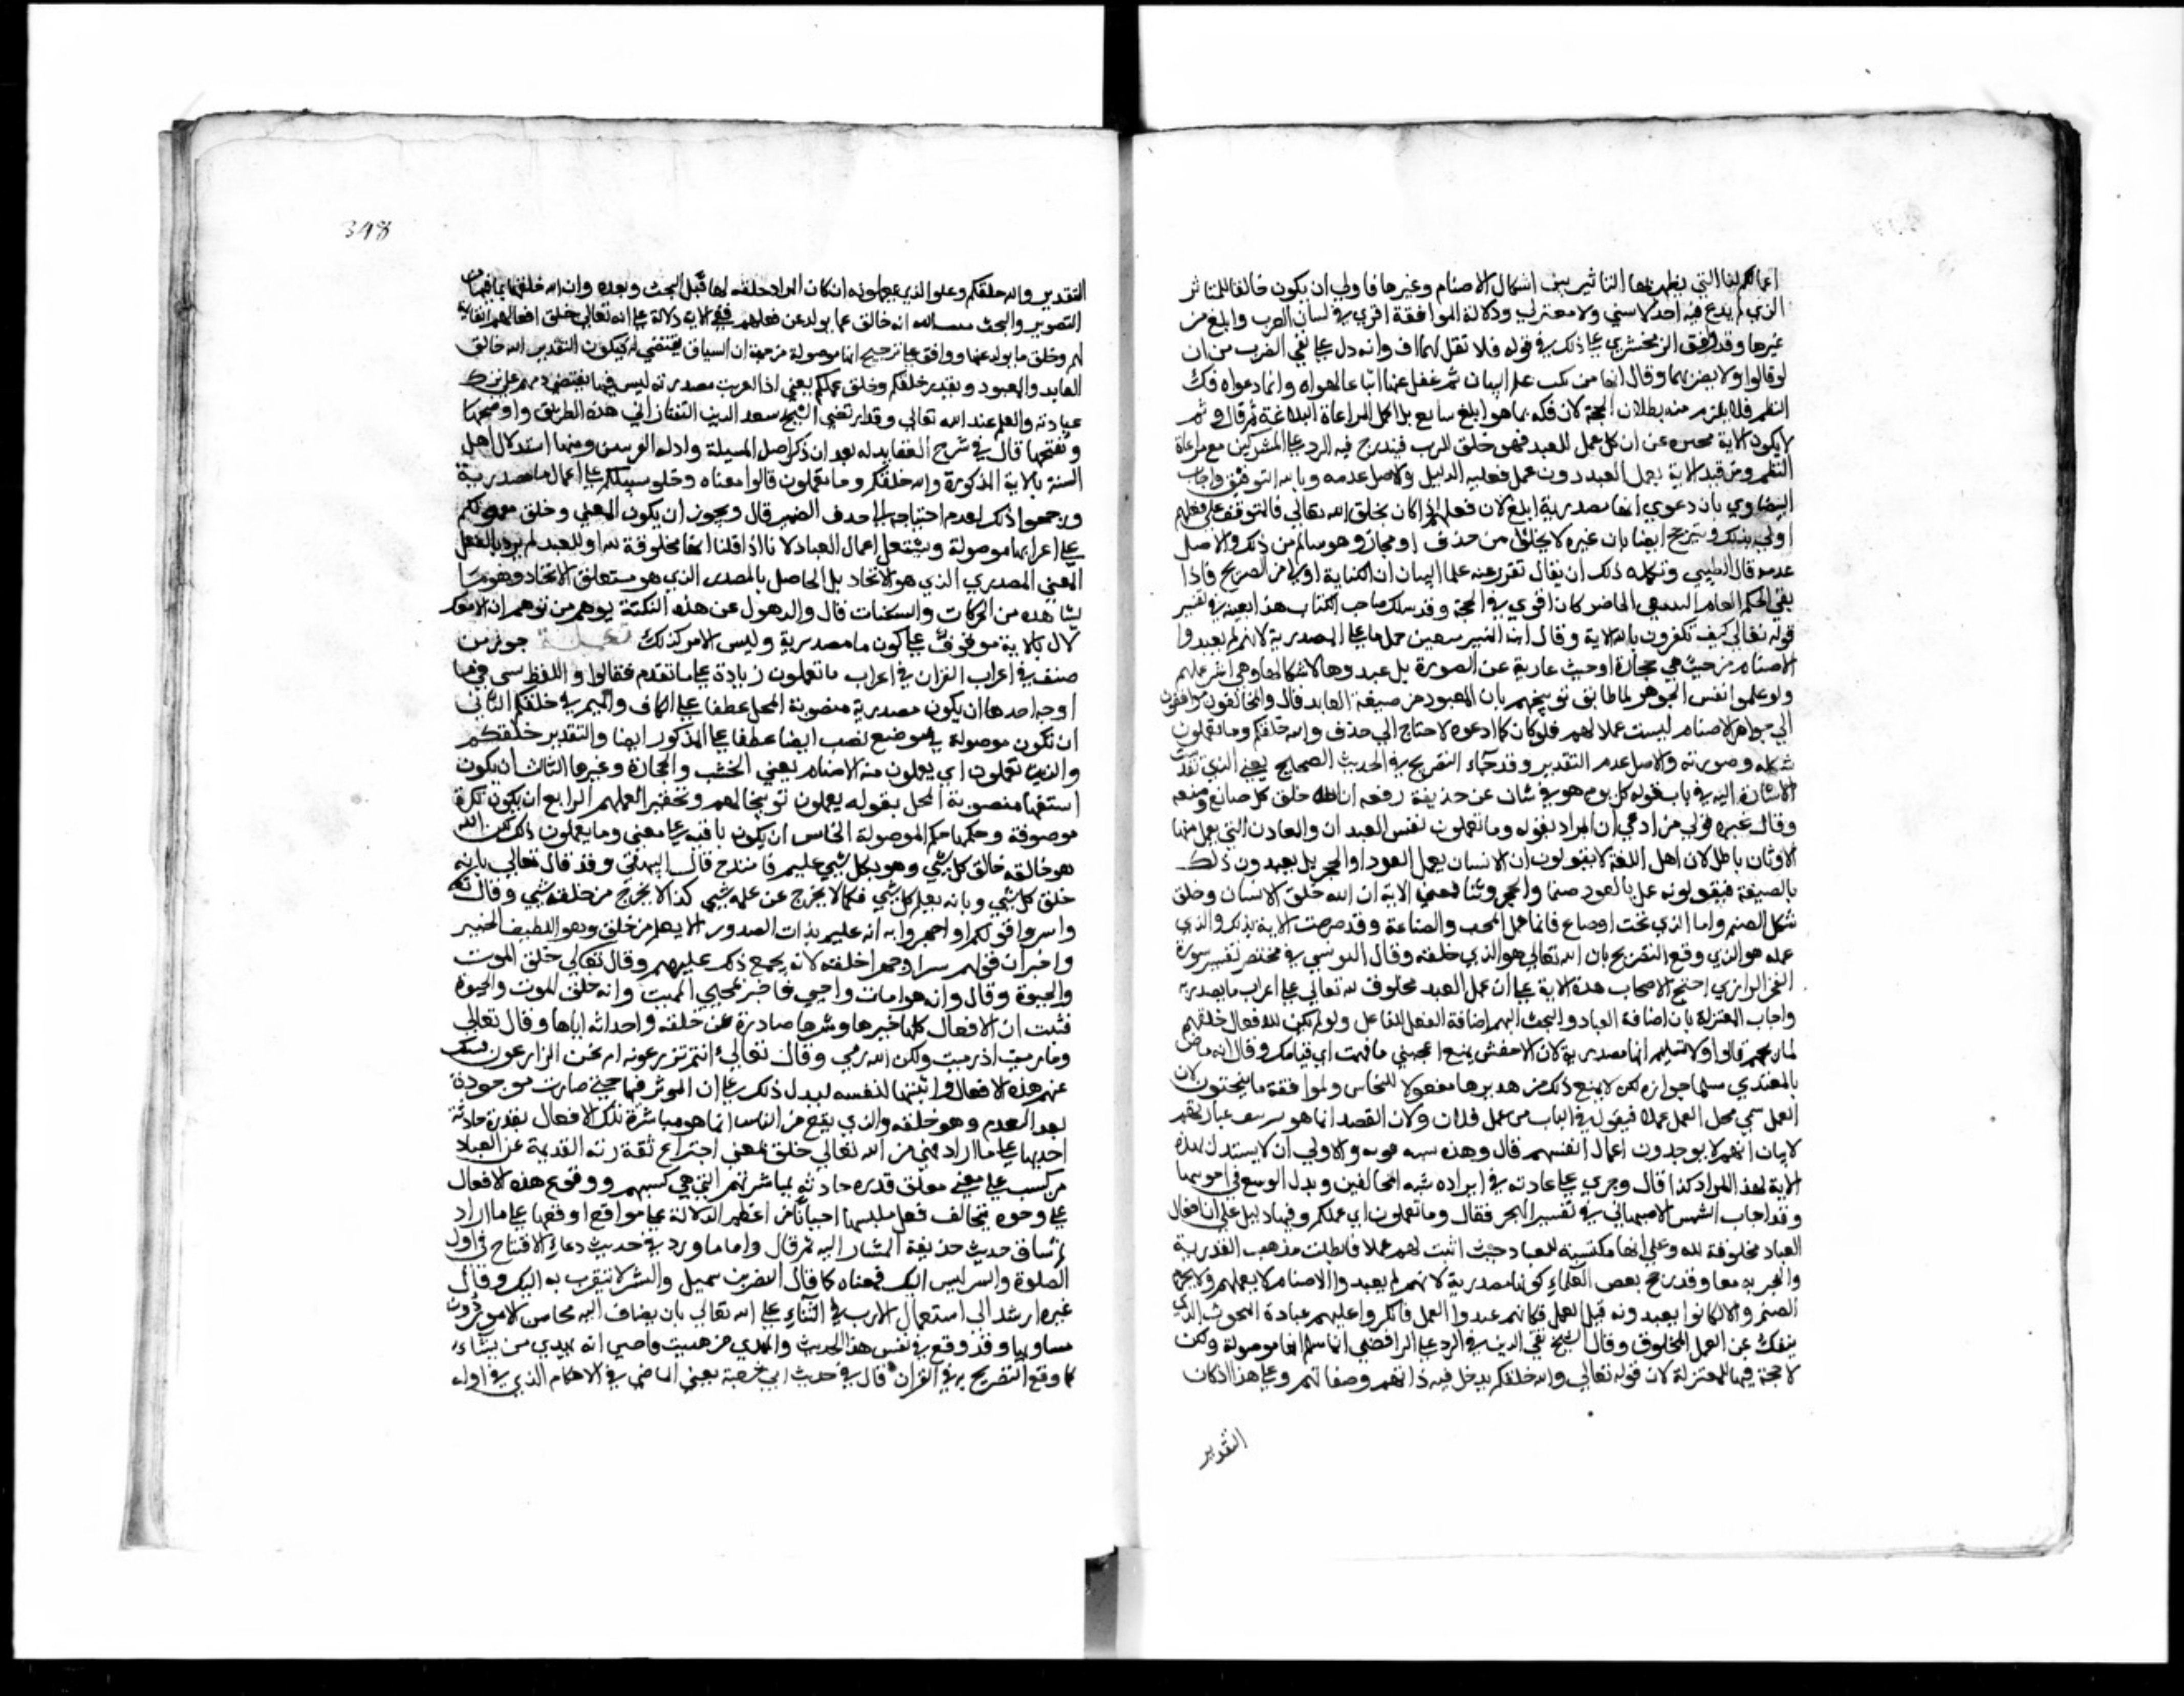 اعمالكم لنا التي يظهر بها التاثير بين اشكال الاصنام وغيرها فاولي ان يكون خالقا للمتاثر
الذي لم يدع فيه احد لا سني ولا معتزلي ودلالة الموافقة اقوي في لسان العرب وابلغ من
غيرها وقد وافق الزمخشري علي ذلك في قوله فلا تقل لهما اف وانه دل علي نفي الضرب من ان
لو قالوا ولا يضربهما وقال انها من نكت علم البيان ثم غفل عنها اتباعا لهواه وانما دعواه فك
النظم فلا يلزم منه بطلان الحجة لان فكه بما هو ابلغ سايع بل اكمل لمراعاة البلاغة ثم قال و ثم
لا يكون الاية مخبرة عن ان كل عمل للعبد فهو خلق للرب فيندرج فيه الرد علي المشركين مع مراعاة
النظم ومن قيد الاية بعمل العبد دون عمل فعليه الدليل والاصل عدمه وبالله التوفيق واجاب
البيضاوي بان دعوي انها مصدرية ابلغ لان فعلهم اذا كان بخلق الله تعالي فالمتوقف علي فعلهم
اولي بذلك ويترجح ايضا بان غيره لا يخلو من حذف او مجاز وهو سالم من ذلك والاصل
عدمه قال الطيبي وتكمله ذلك ان يقال تقرر عند علما البيان ان الكناية اولي من الصريح فاذا
نفي الحكم العام لينتفي الخاص كان اقوي في الحجة وقد سلك صاحب الكتاب هذا بعينه في تفسير
قوله تعالي كيف تكفرون بالله الاية وقال ابن المنير يتعين حمل ما علي المصدرية لانهم لم يعبدوا
الاصنام من حيث هي حجارة او حيث عارية عن الصورة بل عبدوها لاشكالها وهي اثر عملهم
ولو عملوا نفس الجوهر لما طابق توبيخهم بان المعبود من صنعة العابد قال والمخالفون موافقون
الي جواهر الاصنام ليست عملا لهم فلو كان كما ادعوه لاحتاج الي حذف والله خلقكم وما تعملون
شكله وصورته والاصل عدم التقدير وقد جاء التصريح في الحديث الصحيح يعني الذي تقدمت
الاشارة اليه في باب قوله كل يوم هو في شان عن حذيفة رفعه ان الله خلق كل صانع وصنعه
وقال غيره قول من ادعي ان المراد بقوله وما تعملون نفس العيدان والمعادن التي يعمل منها
الاوثان باطل لان اهل اللغة لا يقولون ان الانسان يعمل العود او الحجر بل يعبدون ذلك
بالصنعة فيقولون عمل العود صنما والحجر وثنا فمعني الاية ان الله خلق الانسان وخلق
شكل الصنم واما الذي نحت او صاغ فانما عمل النحت والصناعة وقد صرحت الاية بذلك والذي
عمله هو الذي وقع التصريح بان الله تعالي هو الذي خلقه وقال التونسي في مختصر تفسير سورة
الفخر الرازي احتج الاصحاب بهذه الاية علي ان عمل العبد مخلوق لله تعالي علي اعراب ما مصدرية
واجاب المعتزلة بان اضافة العباد والنحت اليهم اضافة الفعل للفاعل ولو لم يكن للافعال خلقهم
لما قالوا ولا نسلم انها مصدرية لان الاخفش يمنع اعجبني ما قمت اي قيامك وقال انه خاص
بالمتعدي سلمنا جوازه لكن لا يمنع ذلك من تقديرها مفعولا للنحاس ولموافقة ما ينحتون لان
العرب سمي محل العمل عملا فيقول في الباب من عمل فلان ولان القصد انما هو عبادتهم
لا بيان انهم لا يوجدون اعمال انفسهم قال وهذه شبه قوية والاولي ان لا يستدل بهذه
الاية لهذا المراد كذا قال وجري علي عادته في ايراده شبه المخالفين وبذل الوسع في
وقد اجاب الشمس الاصبهاني في تفسيره فقال وما تعملون اي عملكم وفيها دليل علي ان افعال
العباد مخلوقة لله وعلي انها مكتسبة للعباد حيث اثبت لهم عملا فابطلت مذهب القدرية
والجبرية معا وقد رجح بعض العلماء كونها مصدرية لانهم لم يعبدوا الاصنام الا بعملهم لا لجرم
الصنم والا لكانوا يعبدونه قبل العمل فكانهم عبدوا العمل فانكر عليهم عبادة المنحوت الذي
ينفك عن العمل المخلوق وقال الشيخ تقي الدين في الرد علي الرافضي انا سلم انها موصولة ولكن
لا حجة فيها للمعتزلة لان قوله تعالي والله خلقكم يدخل فيه ذاتهم وصفاتهم وعلي هذا اذ كان
التقدير
348
التقدير والله خلقكم وخلق الذي تعملونه ان كان المراد خلقه لها قبل النحت وبعده وان الله خلقها بما فيها من
التصوير والنحت انه خالق ما تولد عن فعلهم ففي الاية دلالة علي انه تعالي خلق افعالهم القائمة
بهم وخلق ما تولد عنها ووافق علي ترجيح انها موصولة من جهة ان السياق يقتضي له فيكون التقدير الله خالق
العابد والمعبود وتقدير خلقكم وخلق عملكم يعني اذا اعربت مصدرية ليس فيها يقتضي ذمهم علي ترك
عبادته والعلم عند الله تعالي وقد ارتضي الشيخ سعد الدين التفتازاني هذه الطريق واوضحها
ونقحها قال في شرح العقايد له بعد ان ذكر اصل المسيلة وادلة الفريقين ومنها استدلال اهل
السنة بالاية المذكورة والله خلقكم وما تعملون قالوا معناه وخلق عملكم علي اعمال ما مصدرية
ورجحوا ذلك لعدم احتياجها الي حذف الضمير قال ويجوز ان يكون المعني وخلق معمولكم
علي اعرابها موصولة ويشتمل اعمال العباد لانا اذا قلنا انها مخلوقة لله او للعبد لم يرد بالفعل
المعني المصدري الذي هو الايجاد بل الحاصل بالمصدر الذي هو متعلق الايجاد وهو ما
يشاهده من الحركات والسكنات قال والذهول عن هذه النكتة يوهم من توهم ان الاستد
لال بالاية موقوف علي كون ما مصدرية وليس الامر كذلك تكملة جوز من
صنف في اعراب القران في اعراب ما تعملون زيادة علي ما تقدم فقالوا واللفظ سمى في ما
اوجه احدها ان يكون مصدرية منصوبة المحل عطفا علي الكاف والميم في خلقكم الثاني
ان تكون موصولة في موضع نصب ايضا عطفا علي المذكور ايضا والتقدير خلقكم
والذين تعملون اي يعملون منه الاصنام يعني الخشب والحجارة وغيرها الثالث ان يكون
استفهاما منصوبة المحل بقوله يعملون توبيخا لهم وتحقيرا لعملهم الرابع ان يكون نكرة
موصوفة وحكمها حكم الموصولة الخامس ان يكون نافية علي معني وما يعملون ذلك لكن الله
هو خالقه خالق كل شي وهو بكل شي عليم فامتدح قال البيهقي وقد قال تعالي بانه
خلق كل شي وبانه يعلم كل شي فكما لا يخرج عن علمه شي كذا لا يخرج من خلقه شي وقال تعالي
واسروا قولكم او اجهروا به انه عليم بذات الصدور الا يعلم من خلق وهو اللطيف الخبير
واخبر ان قولهم سرا وجهرا خلقه لانه بجميع ذلك عليهم وقال تعالي خلق الموت
والحيوة وقال وانه هو امات واحيي فاخبر انه محيي الميت وانه خلق الموت والحيوة
فثبت ان الافعال كلها خيرها وشرها صادرة عن خلقه واحداثه اياها وقال تعالي
وما رميت اذ رميت ولكن الله رمي وقال تعالي اانتم تزرعونه ام نحن الزارعون فسلب
عنهم هذه الافعال واثبتها لنفسه ليدل ذلك علي ان الموثر فيها حتي صارت موجودة
بعد العدم وهو خلقه والذي يقع من الناس انما هو مباشرة تلك الافعال بقدرة حادثة
احدثها علي ما اراد فهي من الله تعالي خلق بمعني اختراع بقدرته القديمة ومن العباد
من كسب علي معني تعلق قدرة حادثة بمباشرتهم التي هي كسبهم ووقوع هذه الافعال
علي وجوه تخالف فعل ملبسها احيانا من اعظم الدلالة علي موقع اوقعها علي ما اراد
ثم ساق حديث حذيفة المشار اليه ثم قال واما ما ورد في حديث دعاء الافتتاح في اول
الصلوة والشر ليس اليك فمعناه كما قال النضر بن شميل والشر لا يتقرب به اليك وقال
غيره ارشد الي استعمال الادب في الثناء علي الله تعالي بان يضاف اليه محاسن الامور دون
مساويها وقد وقع في نفس هذا الحديث والمهدي من هديت فاخبر انه يهدي من يشاء
كما وقع التصريح به في القران قال في حديث ابي يعني الماضي في الاحكام الذي في اوله